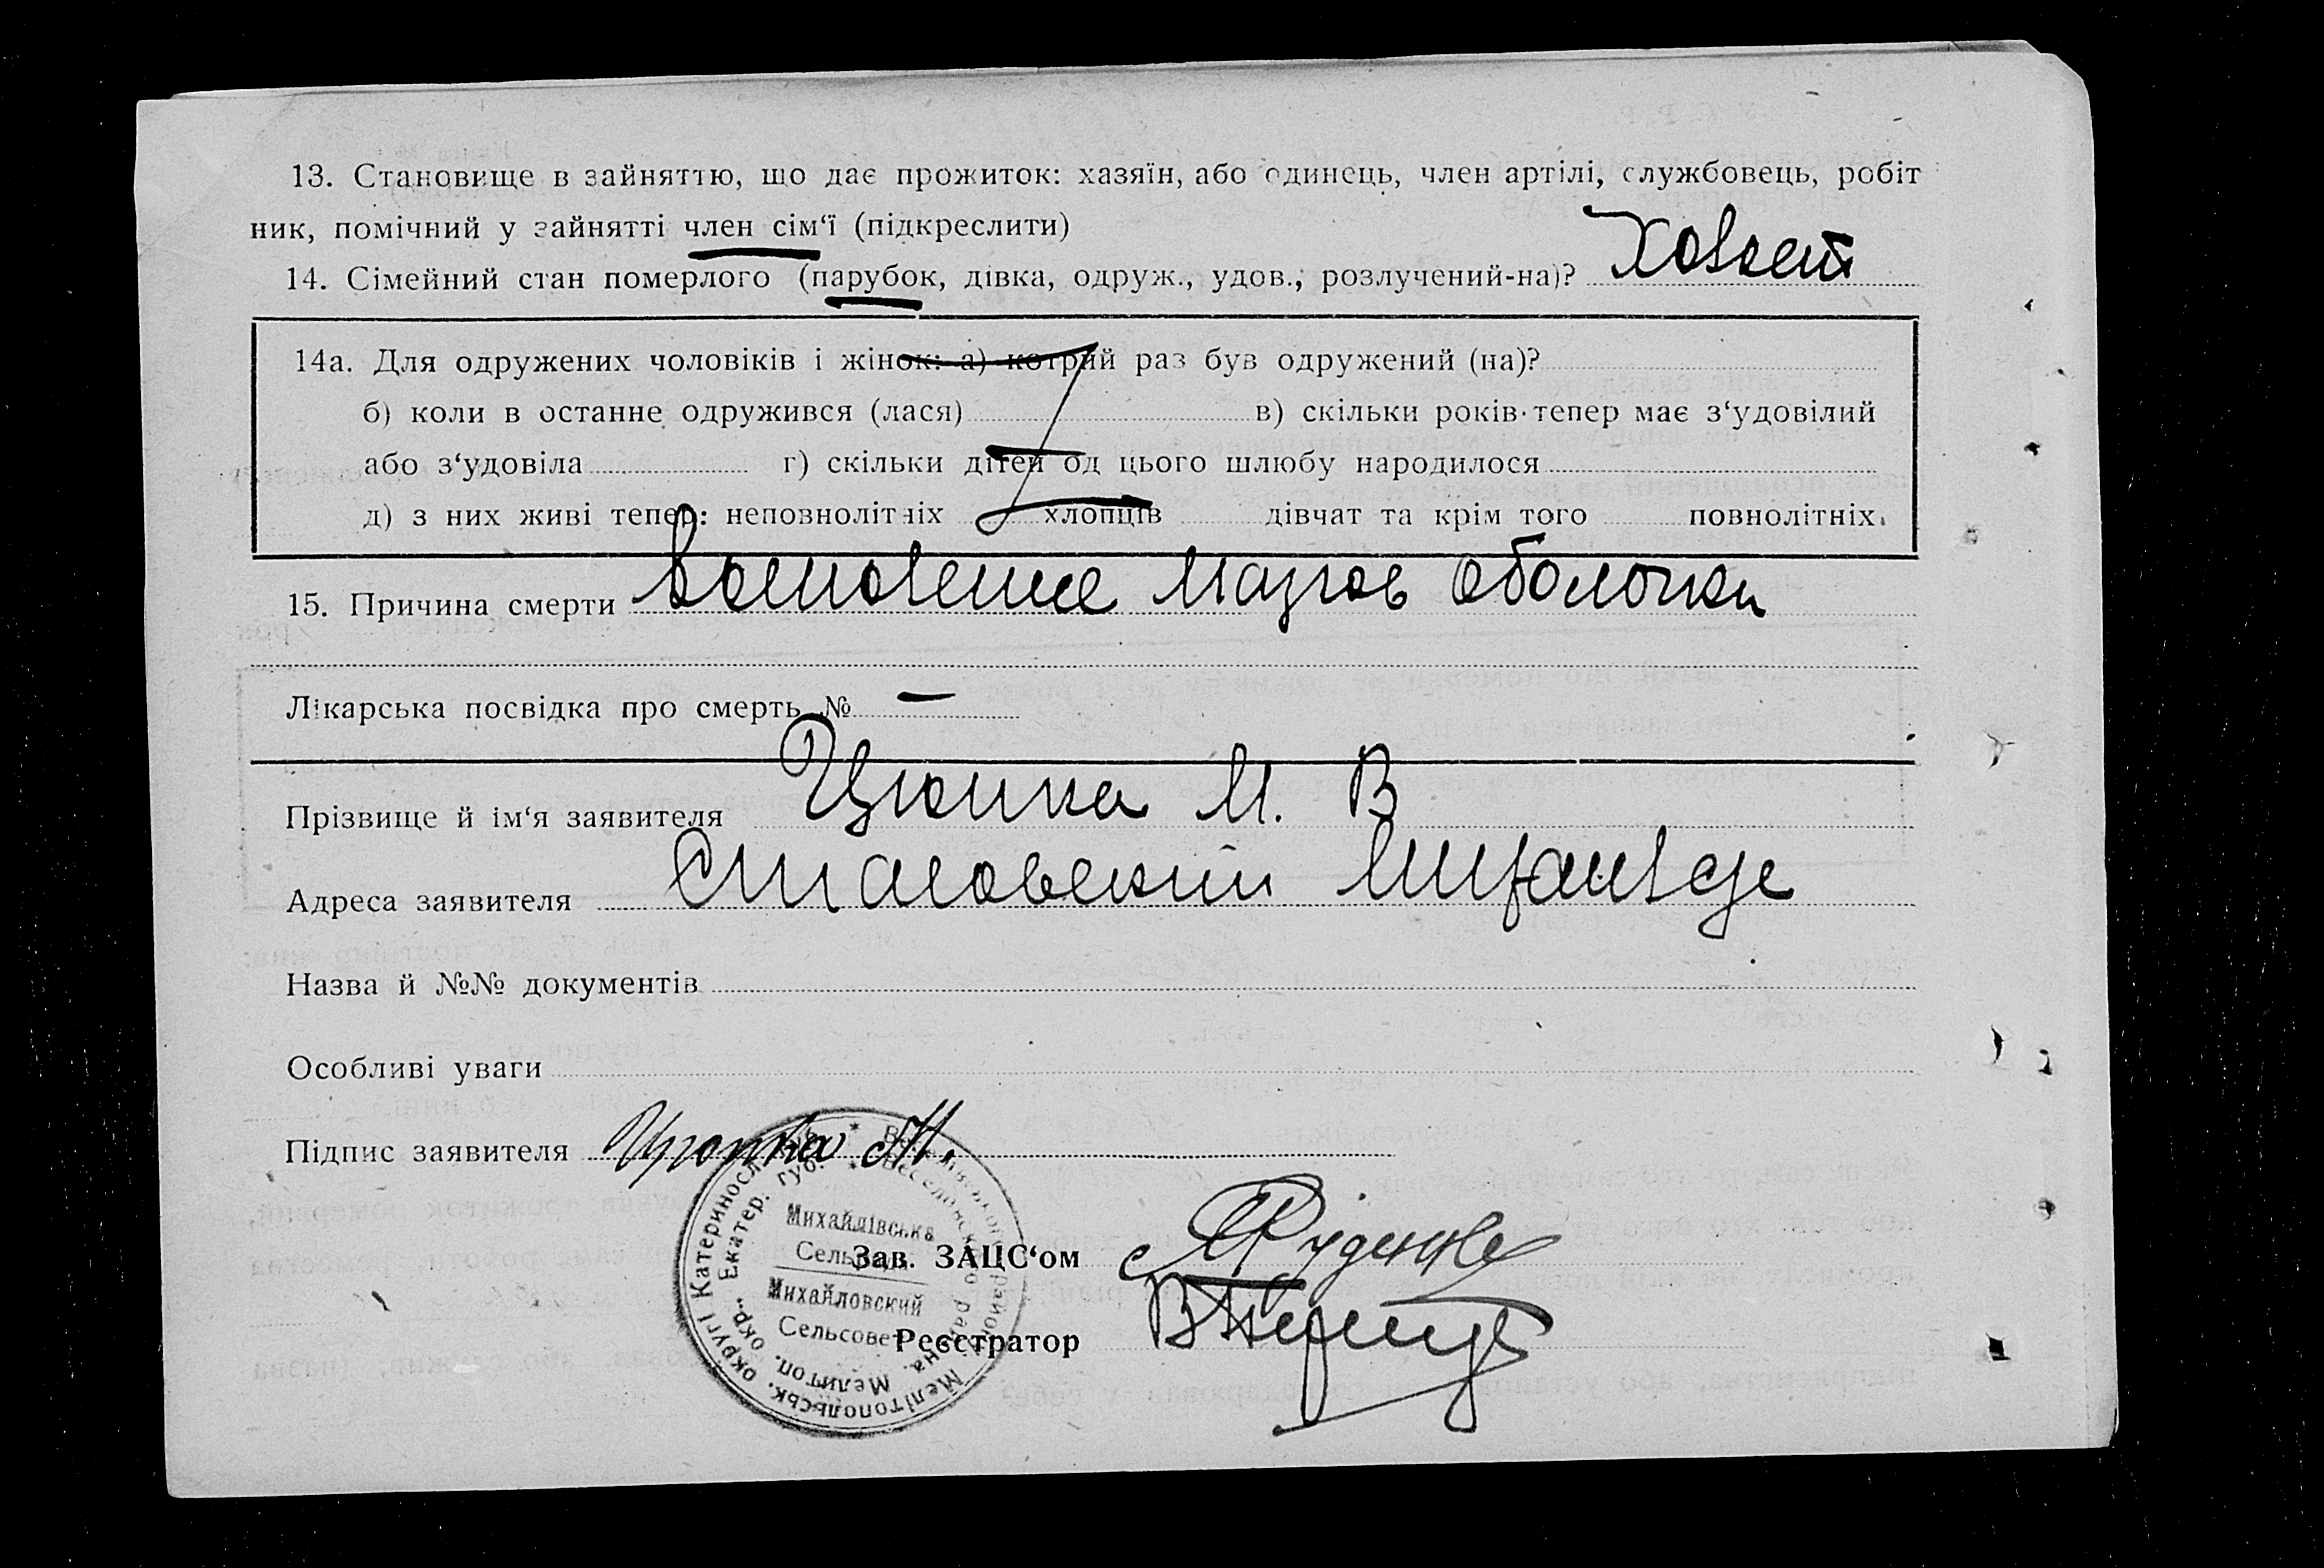 13. Становище в зайняттю, що дає прожиток: хазяїн, або одинець, член артілі, службовець, робіт
ник, помічний у зайнятті член сім‘ї (підкреслити)
14. Сімейний стан померлого (парубок, дівка, одруж., удов., розлучений-на)?
14а. Для одружених чоловіків і жінок: а) котрий раз був одружений (на)?
б) коли в останне одружився (лася) в) скільки років тепер має з‘удовілий
або з‘удовіла г) скільки дітей од цього шлюбу народилося
д) з них живі тепер: неповнолітніх хлопців дівчат та крім того повнолітніх.
15. Причина смерти оболочки
Лікарська посвідка про смерть № –
Прізвище й ім‘я заявителя Цюпка М. В
Адреса заявителя
Назва й №№ документів
Особливі уваги
Підпис заявителя Цюпка М.
Михайлівська
Сельрада
Михайловский
Сельсовет
Зав. ЗАЦС‘ом
Реєстратор